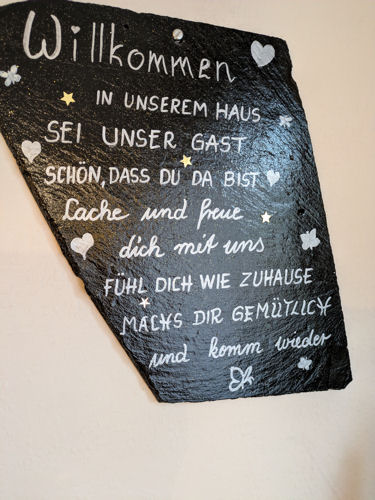 Willkommen
IN UNSEREM HAUS
SEI UNSER GAST
SCHÖN, DASS DU DA BIST
Lache und freue
dich mit uns
FÜHL DICH WIE ZUHAUSE
MACHS DIR GEMÜTLICH
und komm wieder